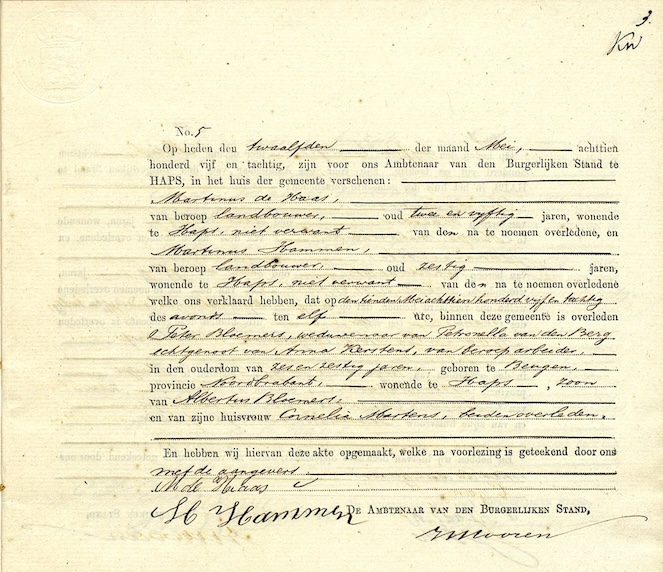 3.
KW
No. 5
Op heden den twaalfden der maand Mei, achttien
honderd vijf en tachtig, zijn voor ons Ambtenaar van den Burgerlijken Stand te
HAPS, in het huis der gemeente verschenen:
Martinus de Haas,
van beroep landbouwer, oud twee en vyftig jaren, wonende
te Haps, niet verwant van den na te noemen overledene, en
Martinus Hammen,
van beroep landbouwer, oud zestig jaren,
wonende te Haps, niet verwant van den na te noemen overledene
welke ons verklaard hebben, dat op den tienden Mei achttien honderd vijf en tachtig
des avonds ten elf ure, binnen deze gemeente is overleden
Peter Bloemers, weduwenaar van Petronella van den Berg
echtgenoot van Anna Kerstens, van beroep arbeider,
in den ouderdom van zes en zestig jaren, geboren te Beugen,
provincie Noordbrabant, wonende te Haps, zoon
van Albertus Bloemers,
en van zijne huisvrouw Cornelia Martens, beiden overleden.
En hebben wij hiervan deze akte opgemaakt, welke na voorlezing is geteekend door ons
met de aangevers.
M de Haas
M Hammen DE AMBTENAAR VAN DEN BURGERLIJKEN STAND,